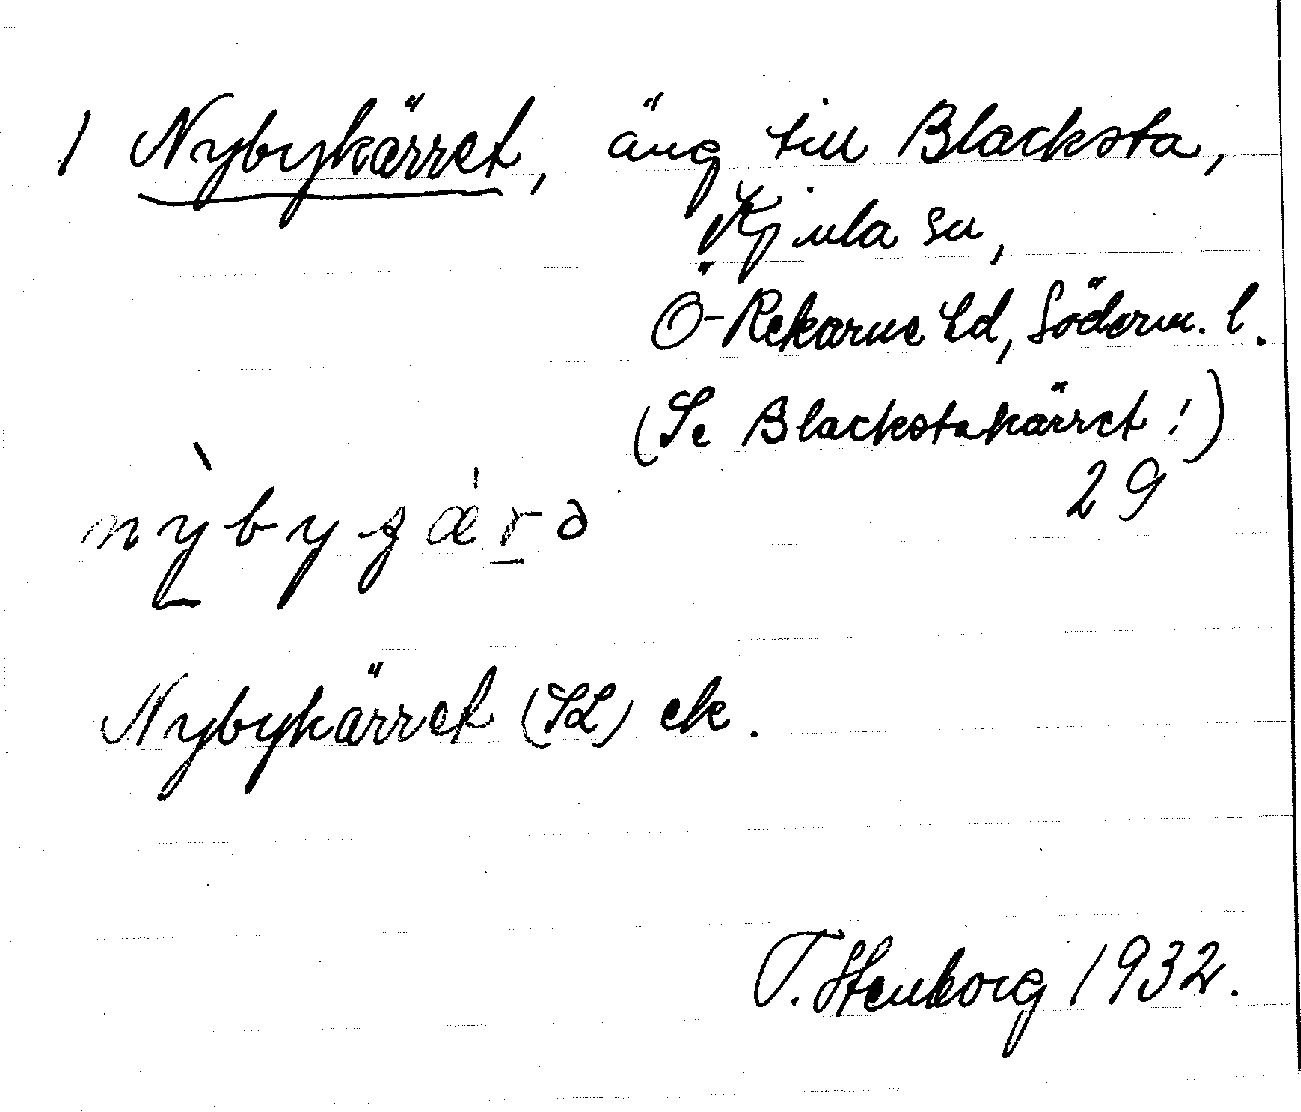 1 Nybykärret, äng till Blacksta,
Kjula sn,
Ö-Rekarne hd, Söderm. l.
(Se Blackstakärret!)
29
nỳbyʒæ̍r̲ə
Nybykärret (SL) ek.
T. Stenborg 1932.